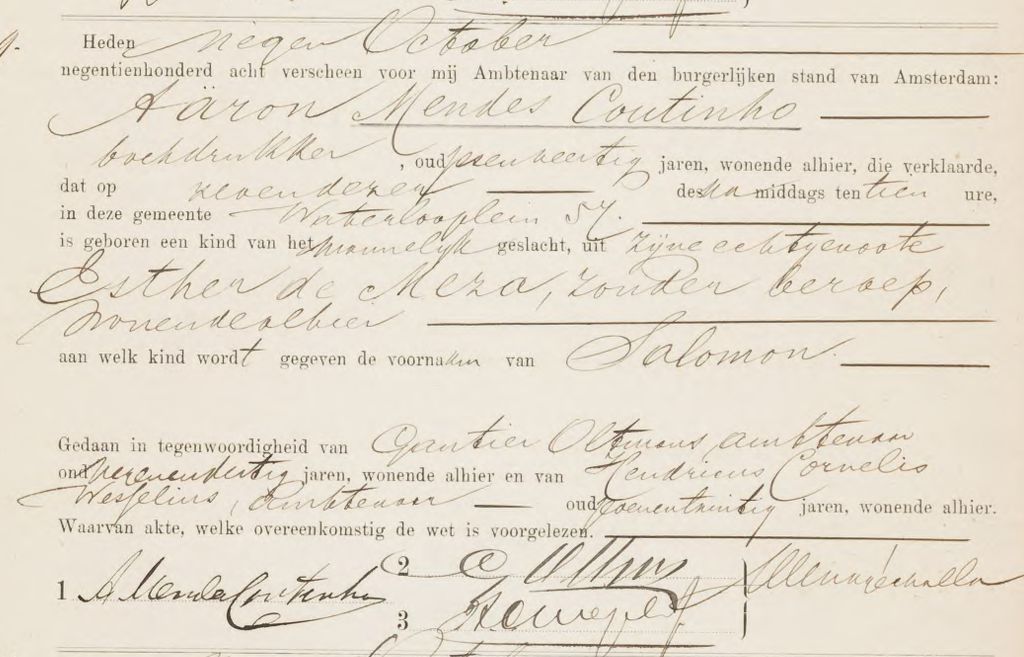 Heden negen October
negentienhonderd acht verscheen voor mij Ambtenaar van den burgerlijken stand van Amsterdam:
Aäron Mendes Coutinho
boekdrukker, oud zesenveertig jaren, wonende alhier, die verklaarde,
dat op zeven dezer des na middags ten tien ure,
in deze gemeente Waterlooplein 57.
is geboren een kind van het mannelyk geslacht, uit zijne echtgenoote
Esther de Meza, zonder beroep,
wonende alhier
aan welk kind wordt gegeven de voornamen van Salomon.
Gedaan in tegenwoordigheid van Gautier Oltmans, ambtenaar
oud jaren, wonende alhier en van Hendricus Cornelis
Wesselius, ambtenaar oud jaren, wonende alhier.
Waarvan akte, welke overeenkomstig de wet is voorgelezen.
1 A Mendes Coutinho
2
3